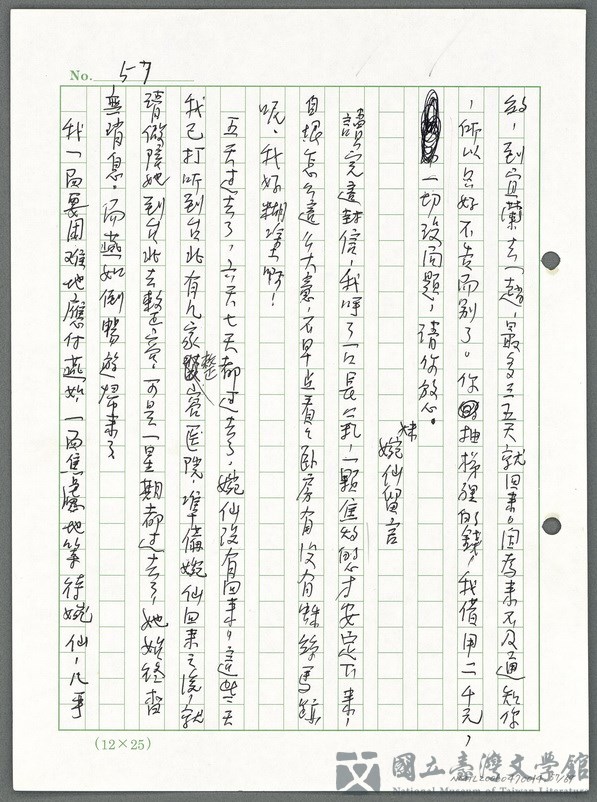 No. 57
的，到宜蘭去一趟，最多三五天就回來。因為來不及通知你
，所以只好不告而別了。你抽梯裡的錢，我借用二千元，
一切沒問題，請你放心。
妹
婉仙留言
讀完這封信，我呼了一口長氣，一顆焦灼的心才安定下來，
自恨怎么這么大意，不早点看看卧房有没有蛛絲馬跡
呢，我好糊塗啊！
五天过去了，六天七天都过去了，婉仙没有回来。這些天
我已打听到台北有几家整容医院，準備婉仙回来之後，就
請做陪她到台北去整容，可是一星期都过去了，她始終杳
無消息。而燕如倒暢遊歸来了
我一面要困难地應付燕如，一面焦慮地等待婉仙，几乎
(12×25)
國立臺灣文學館
National Museum of Taiwan Literature